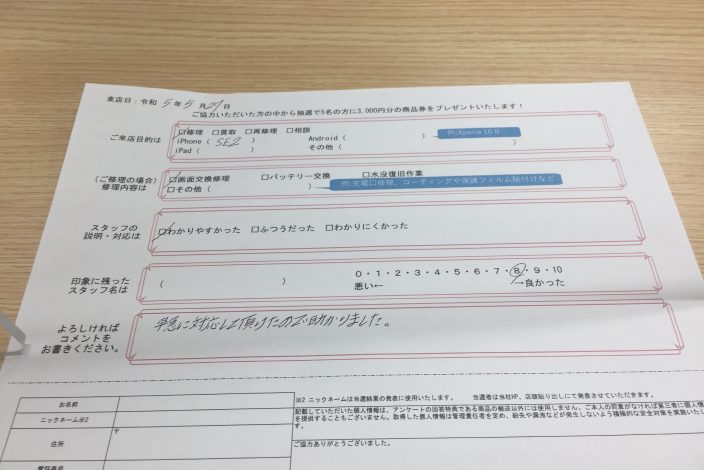 来店日：令和 5 年 5 月 27 日
ご協力いただいた方の中から抽選で5名の方に3,000円分の商品券をプレゼントいたします！
ご来店目的は
☑修理 □買取 □再修理 □相談
iPhone（ SE2 ） Android（ ） 例:Xperia 10Ⅱ
iPad（ ） その他（ ）
（ご修理の場合）
修理内容は
☑画面交換修理 □バッテリー交換 □水没復旧作業
□その他（ ） 例:充電口修理、コーティングや保護フィルム貼付けなど
スタッフの
説明・対応は
☑わかりやすかった □ふつうだった □わかりにくかった
印象に残った
スタッフ名は
（ ） 0・1・2・3・4・5・6・7・8・9・10
悪い← →良かった
よろしければ
コメントを
お書きください。
早急に対応して頂けたので助かりました。
お名前
ニックネーム※2
住所
〒
電話番号
※2 ニックネームは当選結果の発表に使用いたします。 当選者は当社HP、店頭貼り出しにて発表させていただきます。
記載していただいた個人情報は、アンケートの回答特典である商品の郵送以外には使用しません。ご本人の同意がなければ第三者に個人情
を提供することもございません。取得した個人情報は管理責任者を定め、紛失や漏洩などが発生しないよう積極的な安全対策を実施いたし
す。
ご協力ありがとうございました。